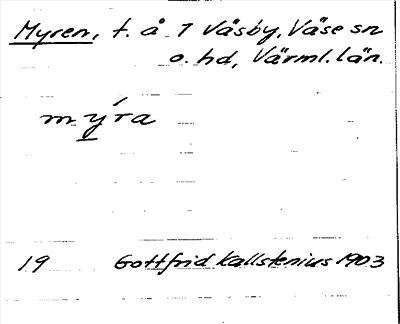 Myren, t. å 1 Väsby, Väse sn
o. hd, Värml. län.
mýra
19 Gottfrid Kallstenius 1903